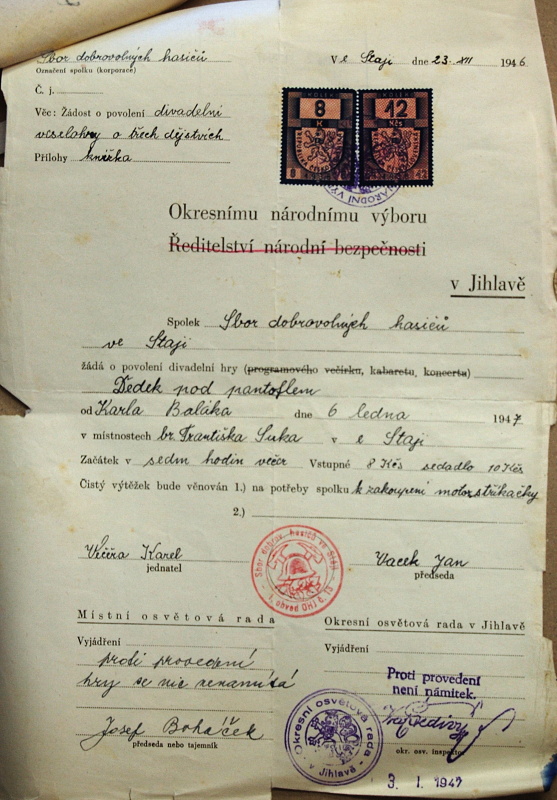 Sbor dobrovolných hasičů
Označení spolku (korporace)
V e Staji dne 23. XII 1946
Č. j.
Věc: Žádost o povolení divadelní
veselohry o třech dějstvích
Přílohy knížka
8 12
Kčs Kčs
Okresnímu národnímu výboru
Ředitelství národní bezpečnosti
v Jihlavě
Spolek Sbor dobrovolných hasičů
ve Staji
žádá o povolení divadelní hry (programového večírku, kabaretu, koncertu)
Dědek pod pantoflem
od Karla Baláka dne 6 ledna 1947
v místnostech br. Františka Suka v e Staji
Začátek v sedm hodin večer Vstupné 8 Kčs sedadlo 10 Kčs
Čistý výtěžek bude věnován 1.) na potřeby spolku k zakoupení motor. stříkačky
2.)
Sbor dobrov. hasičů ve Staji
Karel
jednatel
Vacek Jan
předseda
Místní osvětová rada
Okresní osvětová rada v Jihlavě
Vyjádření
Vyjádření
proti provedení
hry se nic nenamítá
Proti provedení
není námitek.
Josef Boháček
předseda nebo tajemník
Okresní osvětová rada
v Jihlavě
okr. osv. inspektor
3. I. 1947